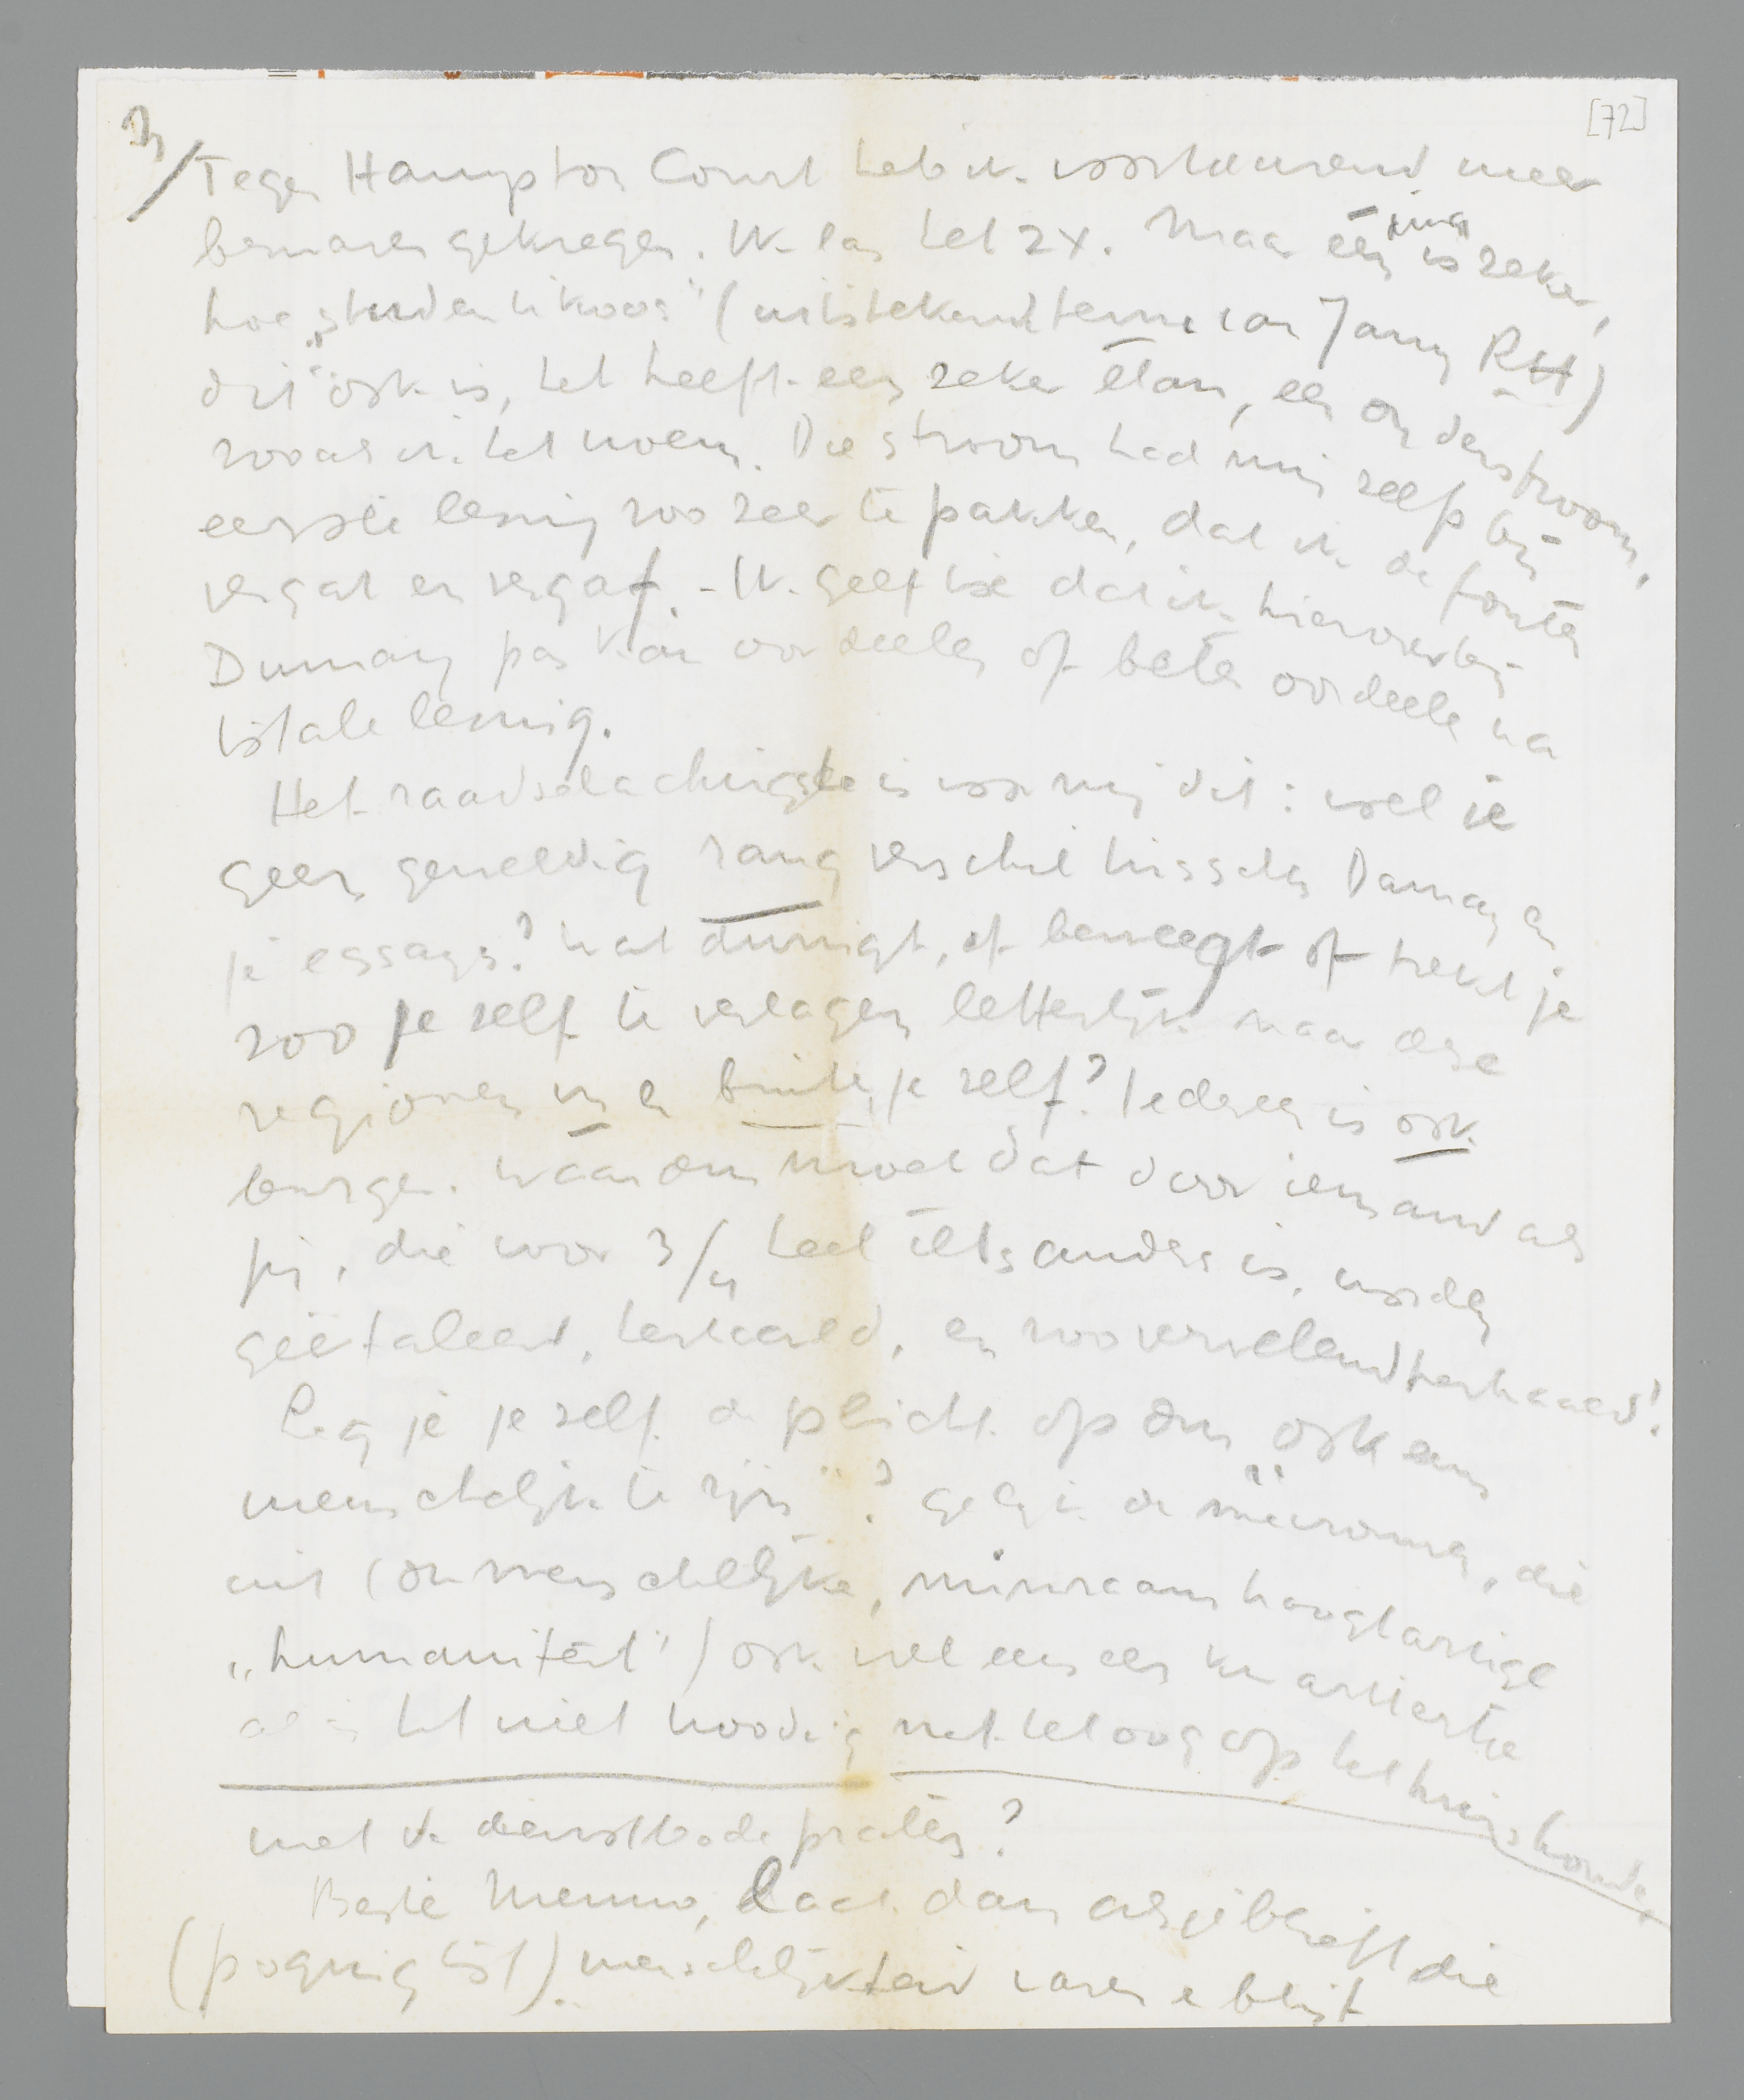 [72]
3/ Tegen Hampton Court heb ik voortdurend meer
bezwaren gekregen. Ik las het 2x. Maar één ding is zeker,
hoe „studentikoos" (uitstekende term van Jany RH)
dit ook is, het heeft een zeker élan, een onderstroom,
zooals ik het noem. Die stroom had mij zelf bij
eerste lezing zoo zeer te pakken, dat ik de fouten
vergat en vergaf. - Ik geef toe dat ik hierover bij
Dumay pas kan oordeelen of beter oordeele na
totale lezing.
Het raadselachtigste is voor mij dit: voel je
geen geweldig rang verschil tusschen Dumay en
je essays? Wat dwingt, of beweegt of trekt je
zoo je zelf te verlagen letterlijk naar deze
regionen in en buiten je zelf? Iedereen is ook
burger. Waarom moet dat door iemand als
jij, die voor 3/4 heel iets anders is, worden
geëtaleerd, herhaald, en zoo vervelend herhaald!
Leg je je zelf de plicht op om „ook eens
menschelijk te zijn"? Gelijk de mevrouw, die
uit (onmenschelijke, minzaam hooghartige
„humaniteit") ook wel eens een kwartiertje
al is het niet noodig met het oog op het huishouden
met de dienstbode praten?
Beste Menno, laat dan asjeblieft die
(poging tot) menschelijkheid varen en blijf